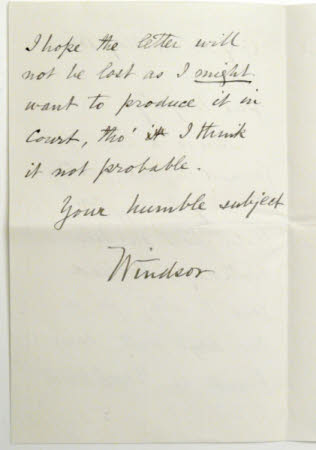 I hope the letter will
not be lost as I might
want to produce it in
Court, tho' it I think
it not probable.
Your humble subject
Windsor